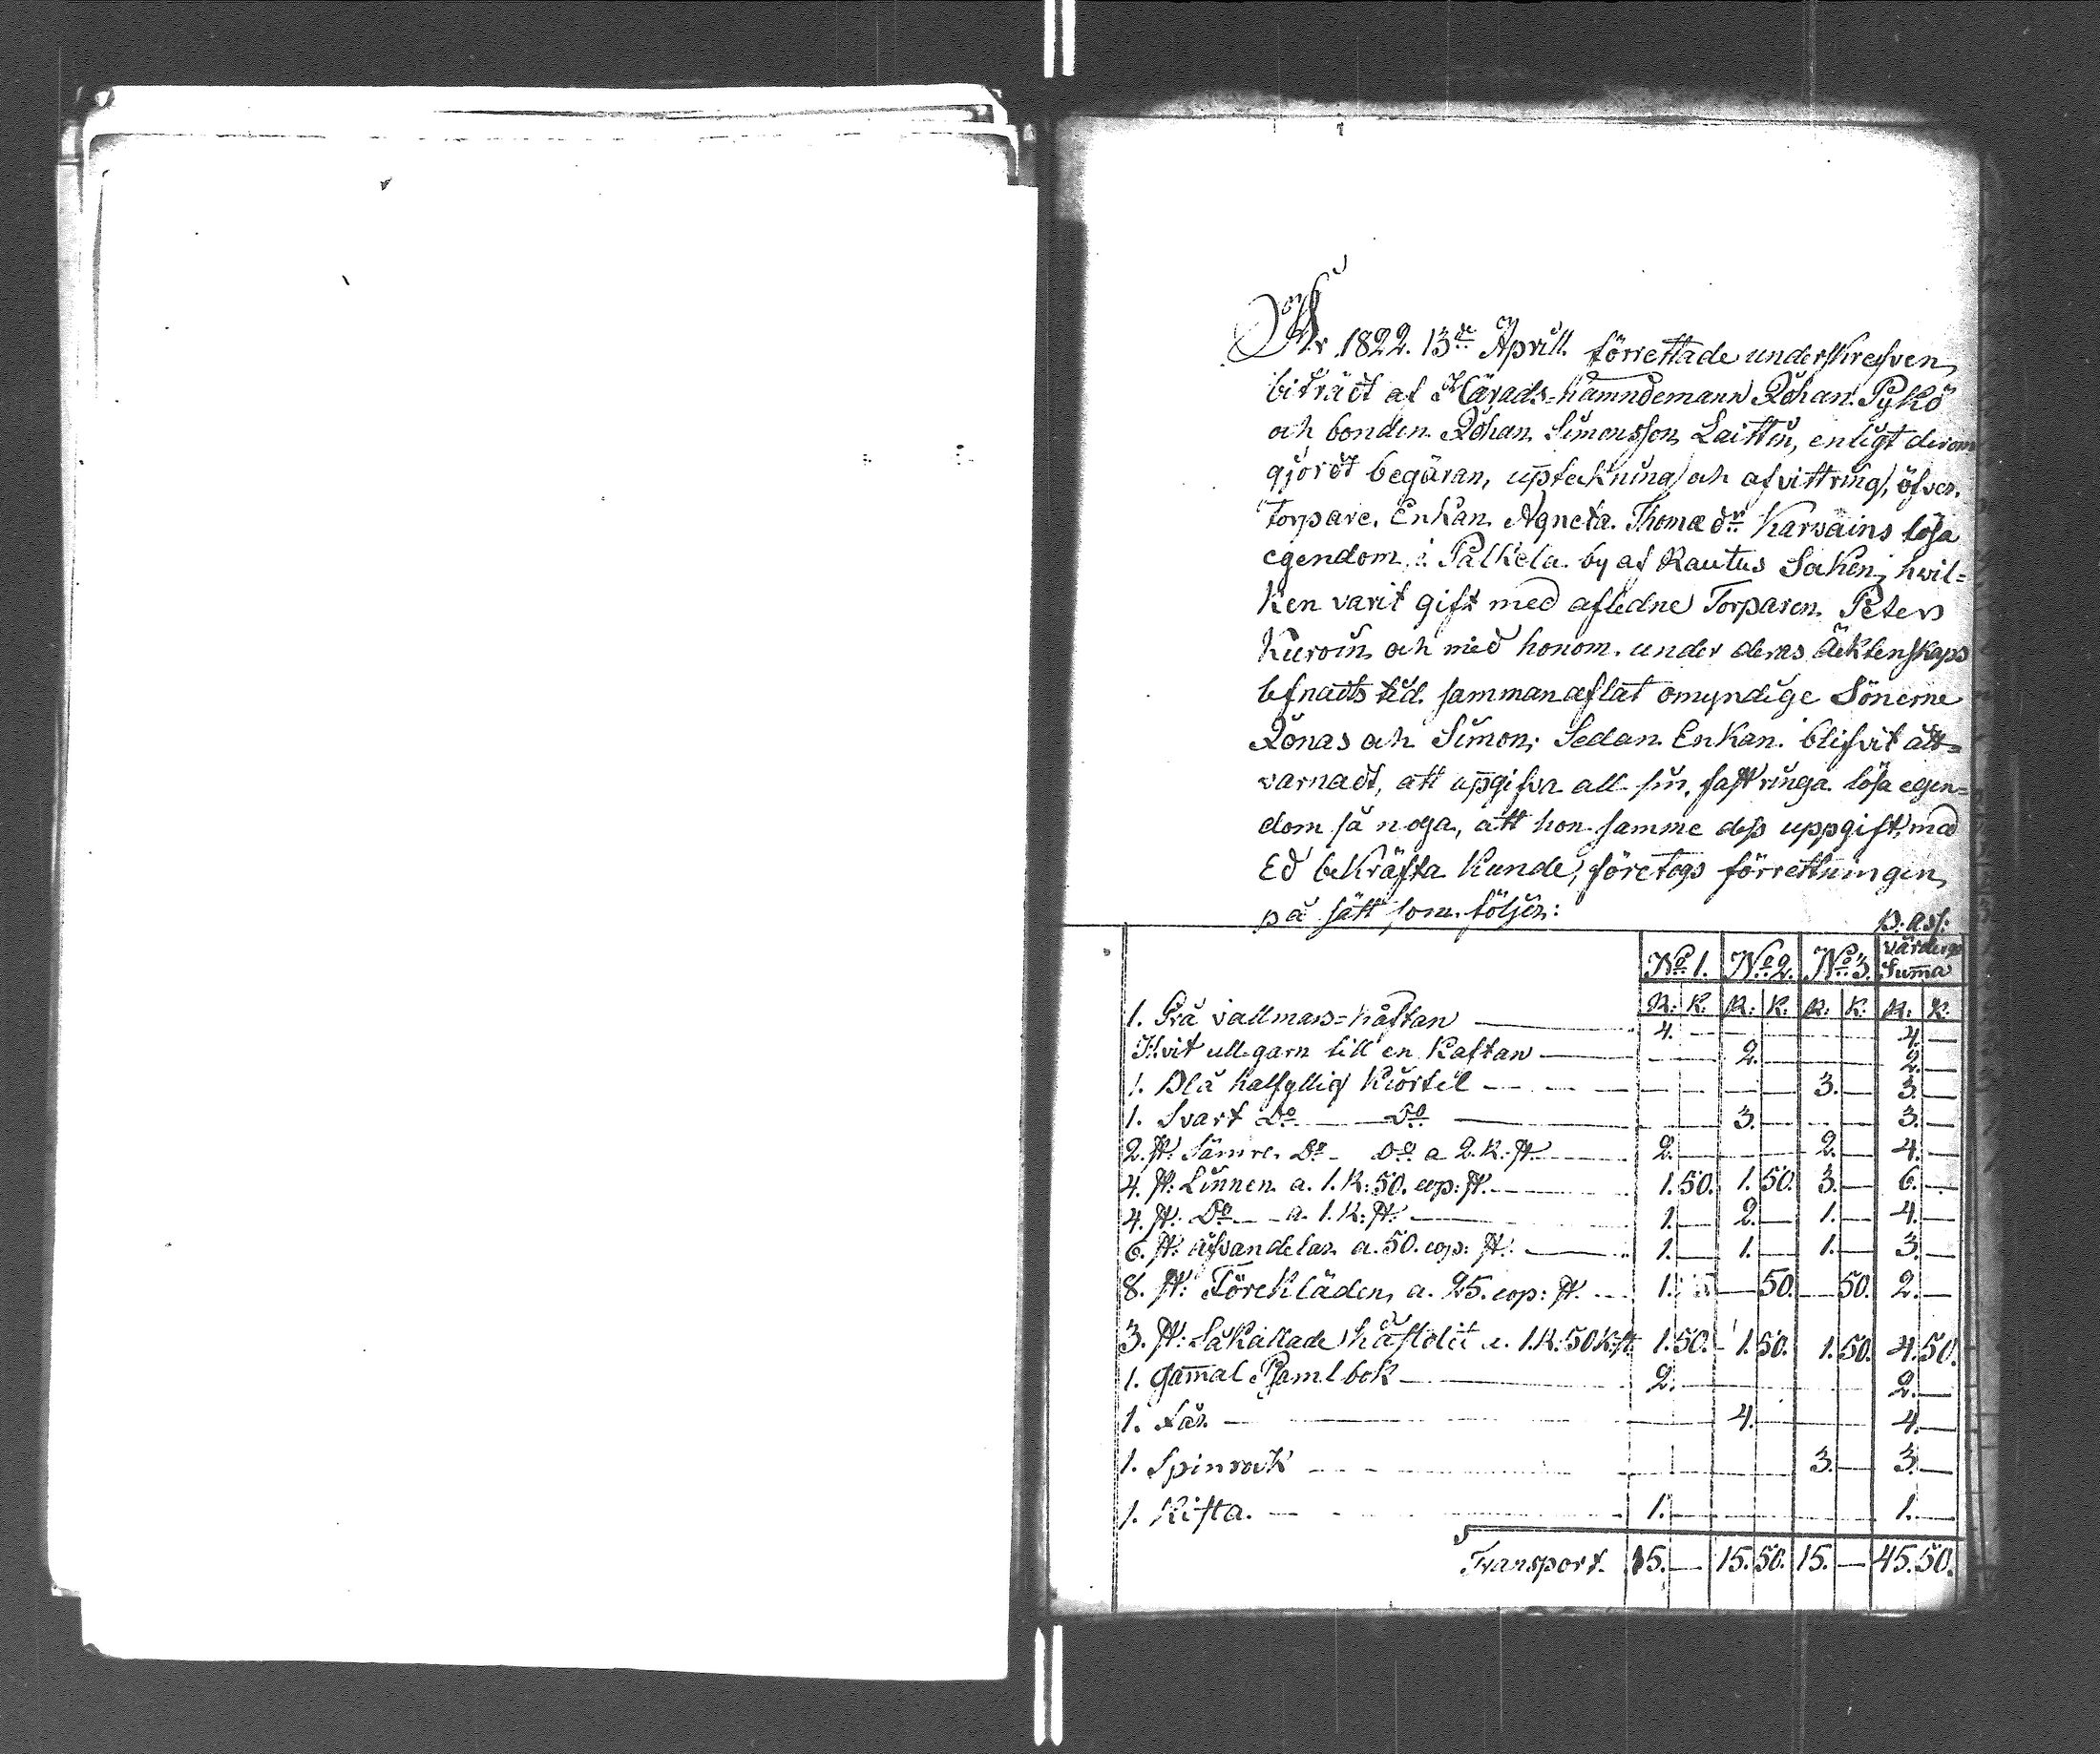 År 1822. 13de Aprill. förrettade underskrefven,
biträdt af Härads-Nämndemann Johan Pykö
och bonden Johan Simonsson Laittin, enligt derom
gjordt begäran, upteckning och afvittring, öfver
Torpare Enkan Agneta Thomædr Karvains lösa
egendom i Palkela by af Rautus Soken, hvil=
ken varit gift med afledne Torparen Peter
Kuroin och med honom under deras Äcktenskaps
lefnads tid sammanaflat omyndige Sönerne
Jonas och Simon; Sedan Enkan blifvit åt=
varnadt, att upgifva all sin, fast ringa lösa egen=
dom så noga, att hon samme dess uppgift med
Ed bekräfta kunde, företogs förrettningen,
på sätt som följer:
B: Ass:
No 1. No 2. No 3. värderings Summa
R: K. R: K. R. K. R. K.
1. Grå vallmans=kaftan 4. — 4. —
Hvit ullgarn till en Kaftan 2. — 2. —
1. Blå halfyllig kiortel 3. — 3. —
1. Svart Do Do 3. — 3. —
2. st: Sämre Do Do a 2. R. st. 2. — 2. — 4. —
4. st: Linnen a. 1. R: 50. cop: st. 1. 50. 1. 50. 3. — 6. —
4. st: Do a. 1. R: st: 1. — 2. — 1. — 4. —
6. st: a. 50. cop: st: 1. — 1. — 1. — 3. —
8. st: Förekläden, a. 25. cop: st. 1. — 50. — 50. 2. —
3. st: Såkallade a. 1. R: 50 K: st. 1. 50. 1. 50. 1. 50. 4. 50.
1. gamal Psamlbok 2. — 2. —
1. Får 4. — 4. —
1. Spinrock 3. — 3. —
1. Kista. 1. — 1. —
Transport. 15. — 15. 50. 15. — 45. 50.